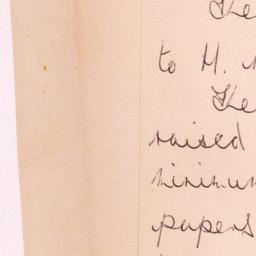 The
to H.
The
raised
minimum
papers